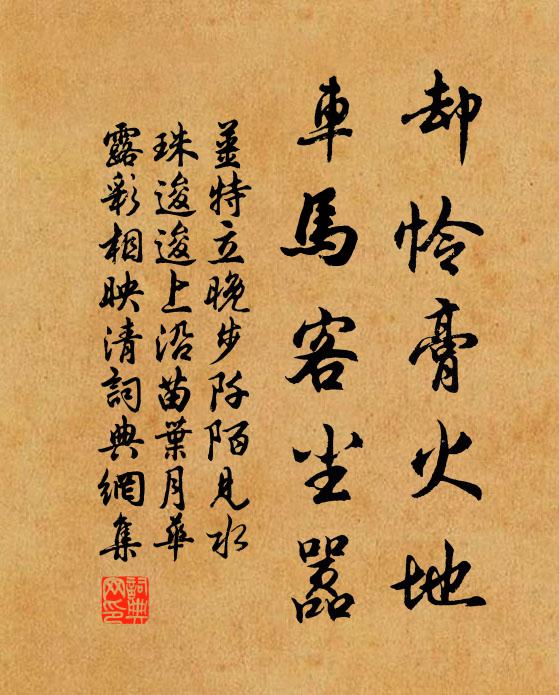 却怜膏火地
車馬客尘嚣
姜特立晚步阡陌見水
珠逡逡上沿苗葉月華
露彩相映清詞典網集
詞典网印